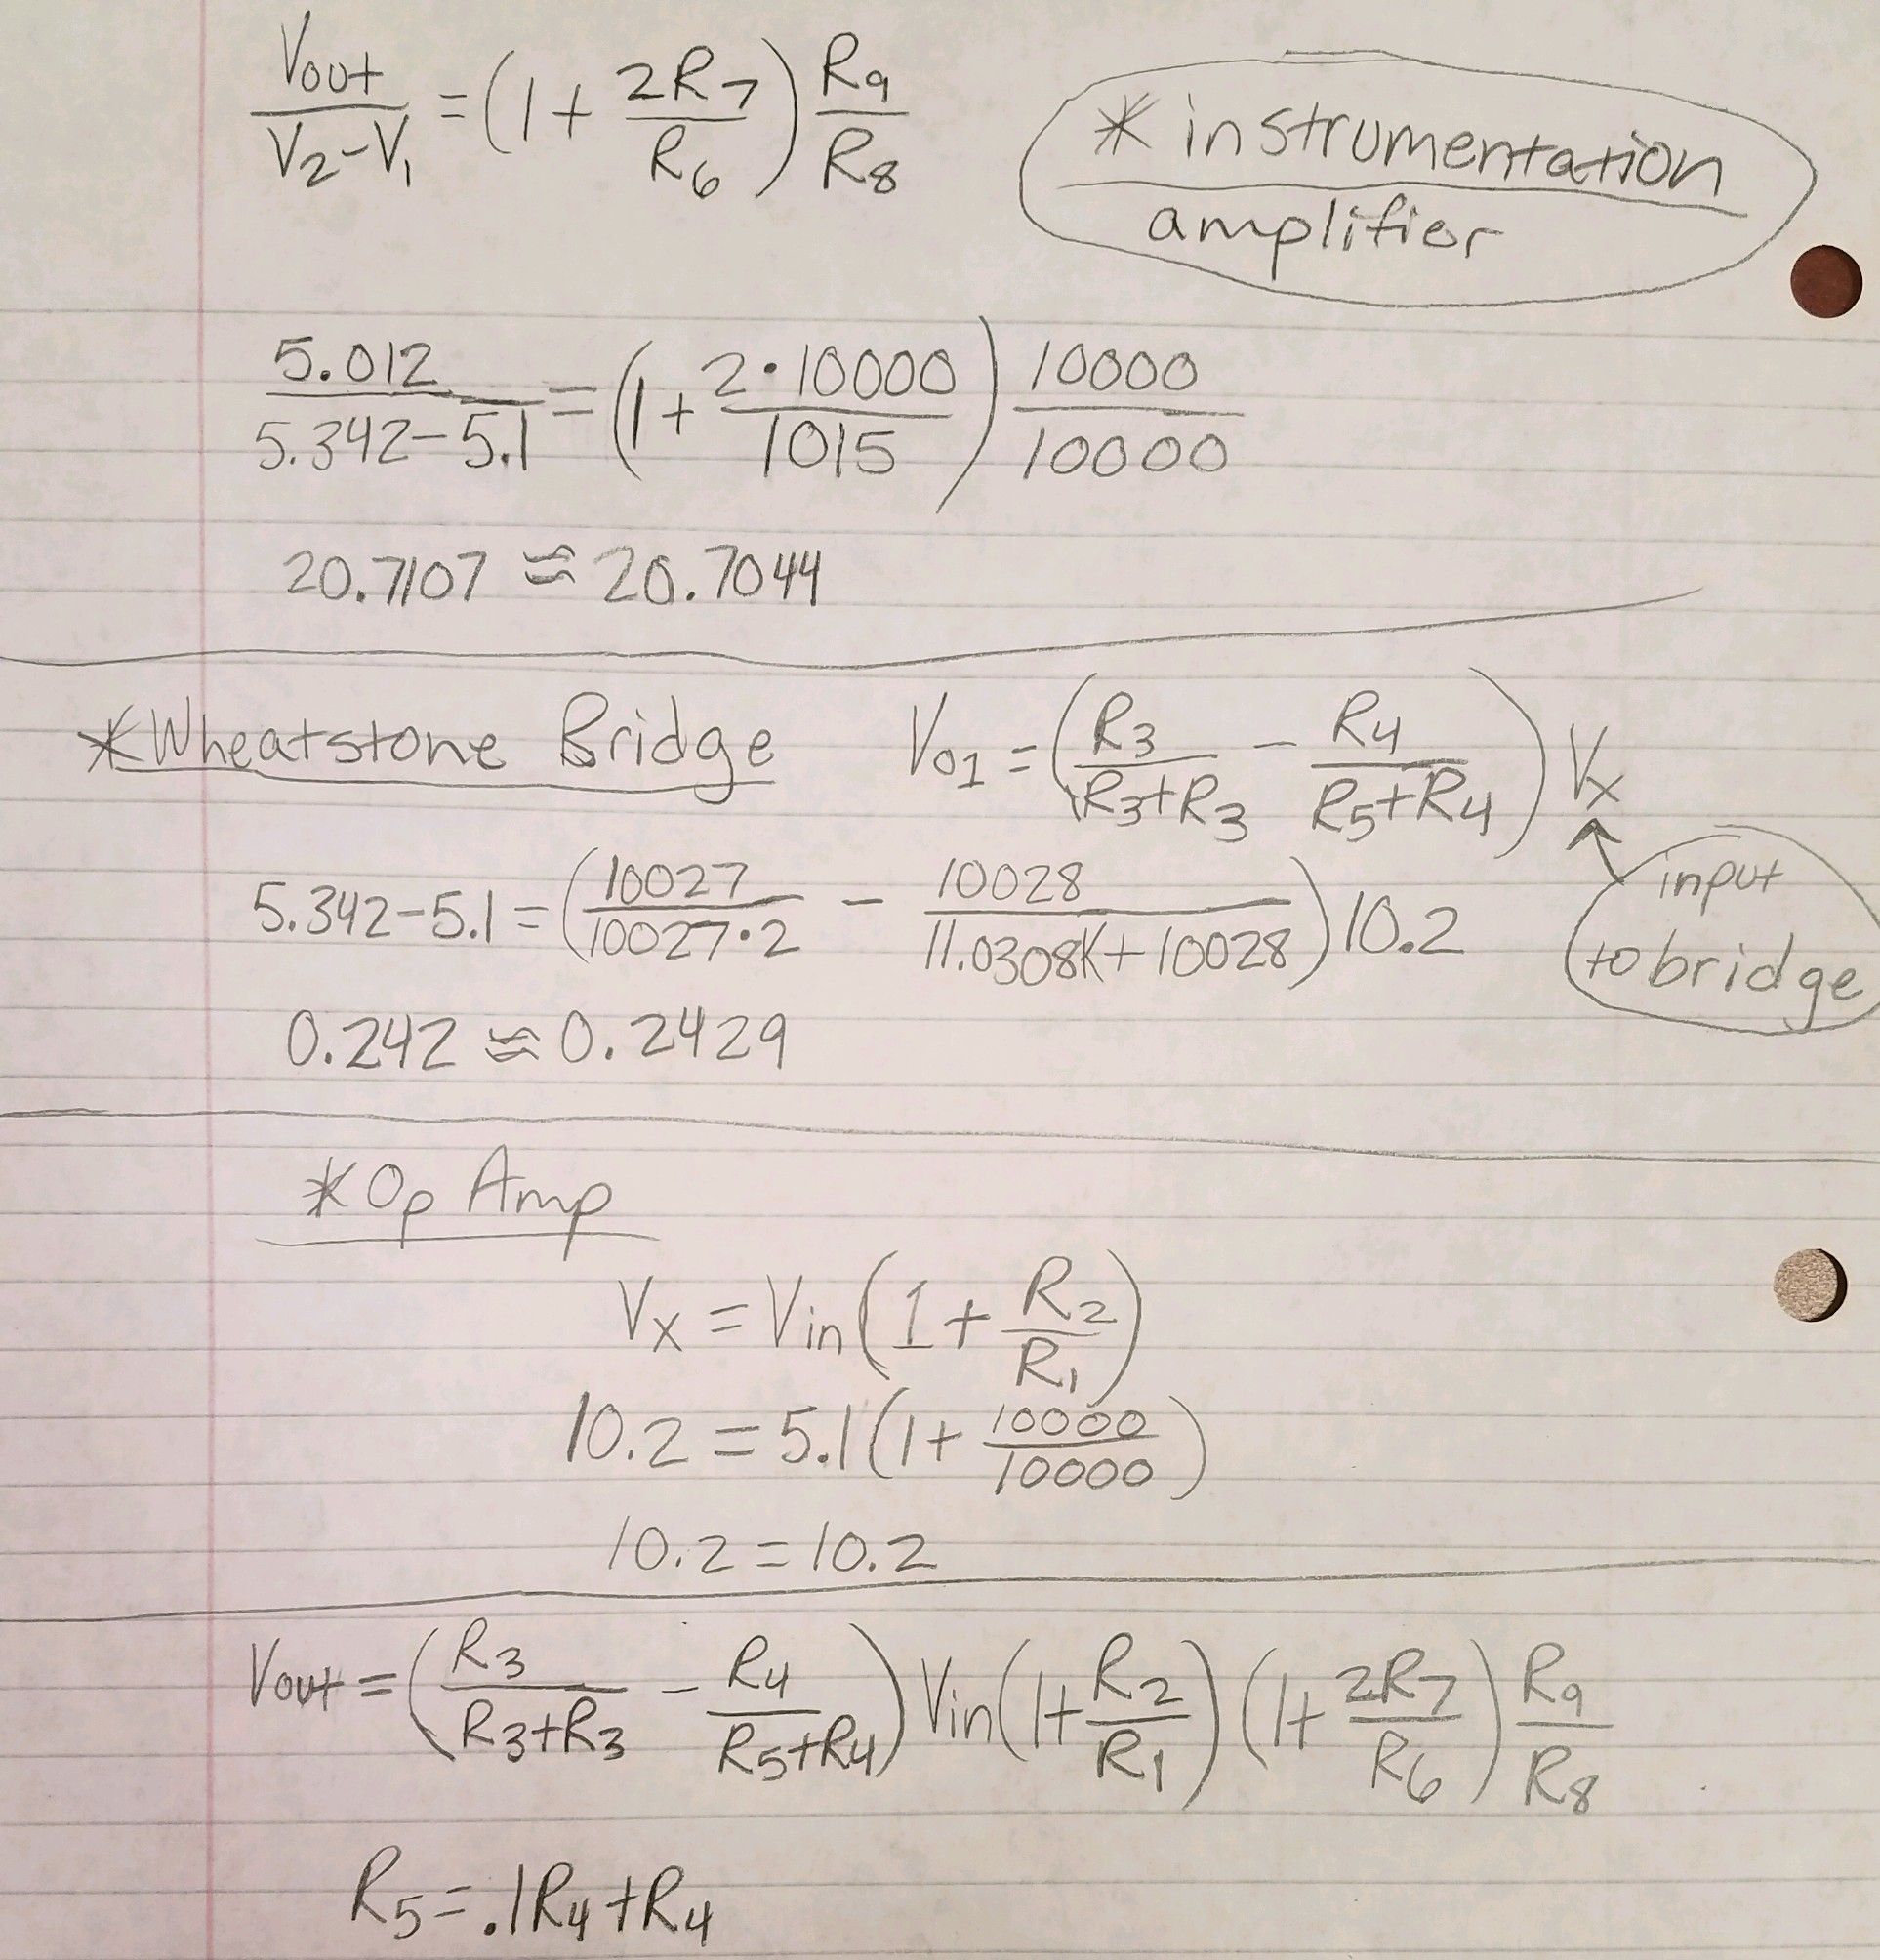 Vout/(V₂-V₁) = (1 + 2R₇/R₆) R₉/R₈
* instrumentation
amplifier
5.012/(5.342-5.1) = (1 + 2·10000/1015) 10000/10000
20.7107 ≈ 20.7044
*Wheatstone Bridge
V₀₁ = (R₃/(R₃+R₃) - R₄/(R₅+R₄)) Vₓ
input
to bridge
5.342-5.1 = (10027/(10027·2) - 10028/(11.0308K+10028)) 10.2
0.242 ≈ 0.2429
*Op Amp
Vₓ = Vin(1 + R₂/R₁)
10.2 = 5.1(1 + 10000/10000)
10.2 = 10.2
Vout = (R₃/(R₃+R₃) - R₄/(R₅+R₄)) Vin(1 + R₂/R₁)(1 + 2R₇/R₆) R₉/R₈
R₅ = .1R₄+R₄